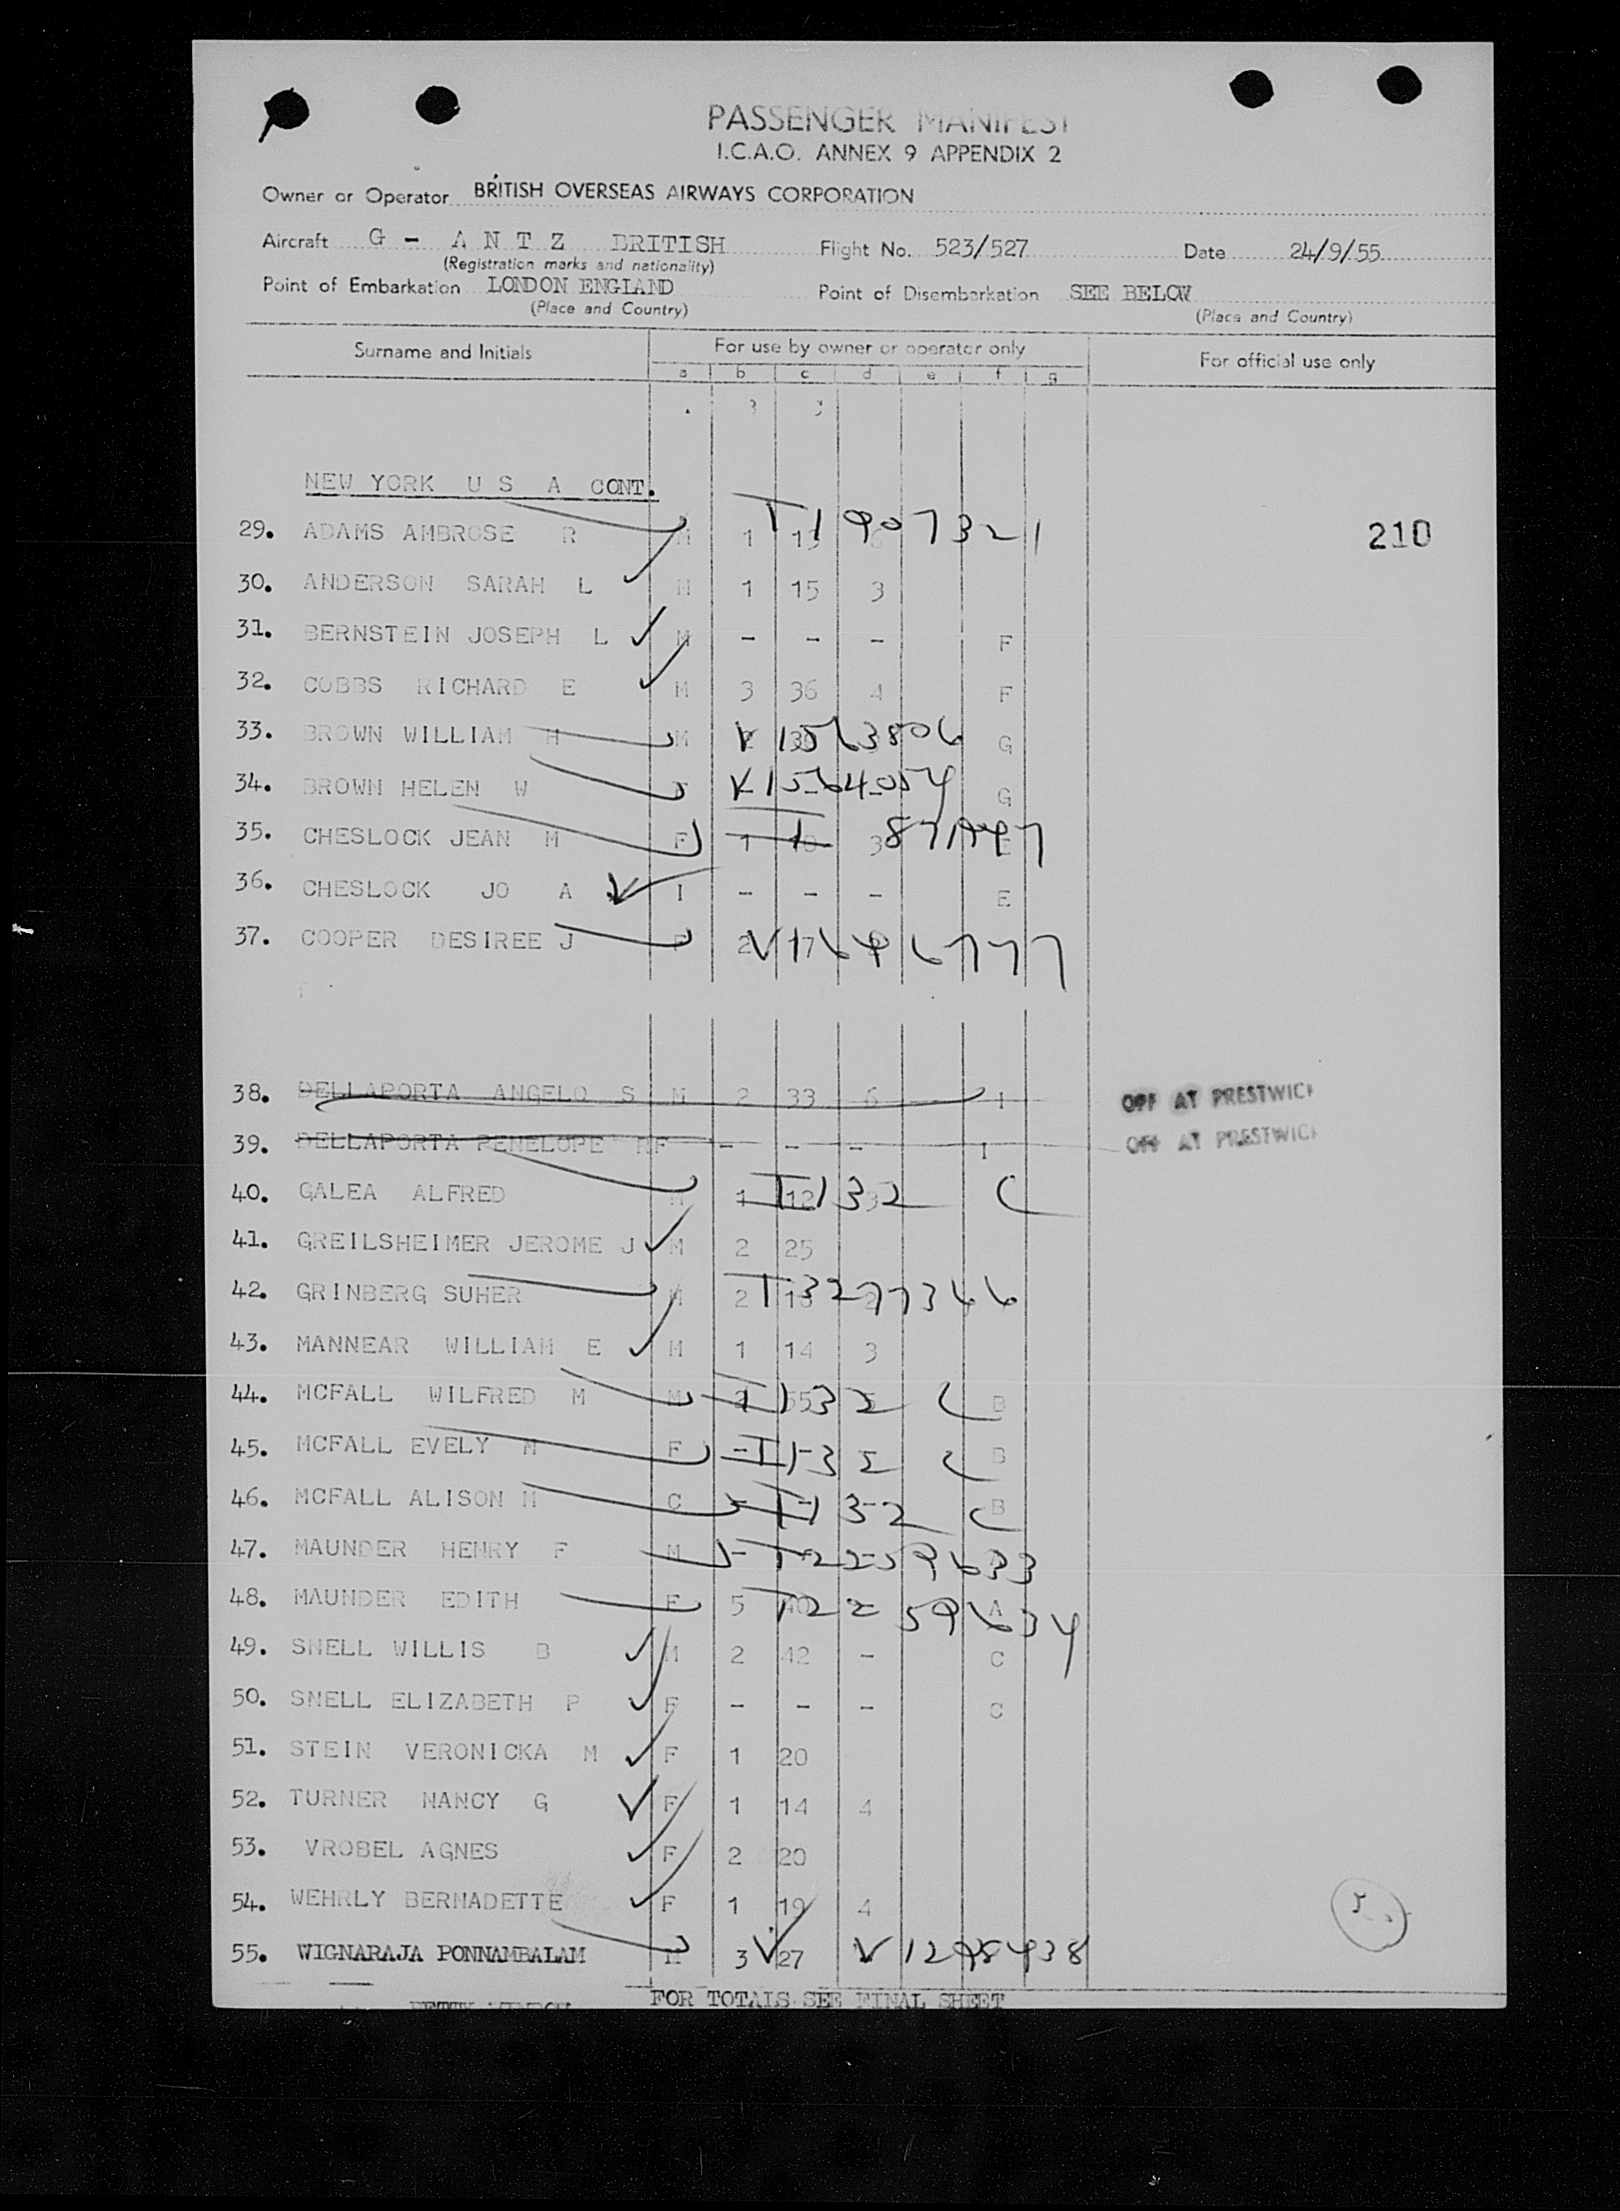 PASSENGER MANIFEST
I.C.A.O. ANNEX 9 APPENDIX 2
Owner or Operator BRITISH OVERSEAS AIRWAYS CORPORATION
Aircraft G - A N T Z BRITISH Flight No. 523/527 Date 24/9/55
(Registration marks and nationality)
Point of Embarkation LONDON ENGLAND Point of Disembarkation SEE BELOW
(Place and Country) (Place and Country)
Surname and Initials For use by owner or operator only For official use only
a b c d e f g
NEW YORK U S A CONT.
29. ADAMS AMBROSE R M 1 T1907321 210
30. ANDERSON SARAH L M 1 15 3
31. BERNSTEIN JOSEPH L M - - - F
32. COBBS RICHARD E M 3 36 4 F
33. BROWN WILLIAM H M V1563806 G
34. BROWN HELEN W F V1564054 G
35. CHESLOCK JEAN M F 1 3
36. CHESLOCK JO A I - - - E
37. COOPER DESIREE J F 2 17
38. DELLAPORTA ANGELO S M 2 33 6 I OFF AT PRESTWICK
39. DELLAPORTA PENELOPE M F - - - I OFF AT PRESTWICK
40. GALEA ALFRED M 1 12 3 I 132 C
41. GREILSHEIMER JEROME J M 2 25
42. GRINBERG SUHER M 2 T3277366
43. MANNEAR WILLIAM E M 1 14 3
44. MCFALL WILFRED M M I 132 C B
45. MCFALL EVELY M F - I 132 C B
46. MCFALL ALISON M C - I 132 C B
47. MAUNDER HENRY F M - T2259633
48. MAUNDER EDITH F 5 T2259634 A
49. SNELL WILLIS B M 2 42 - C
50. SNELL ELIZABETH P F - - - C
51. STEIN VERONICKA M F 1 20
52. TURNER NANCY G F 1 14 4
53. VROBEL AGNES F 2 20
54. WEHRLY BERNADETTE F 1 19 4
55. WIGNARAJA PONNAMBALAM M 3 27
FOR TOTALS SEE FINAL SHEET